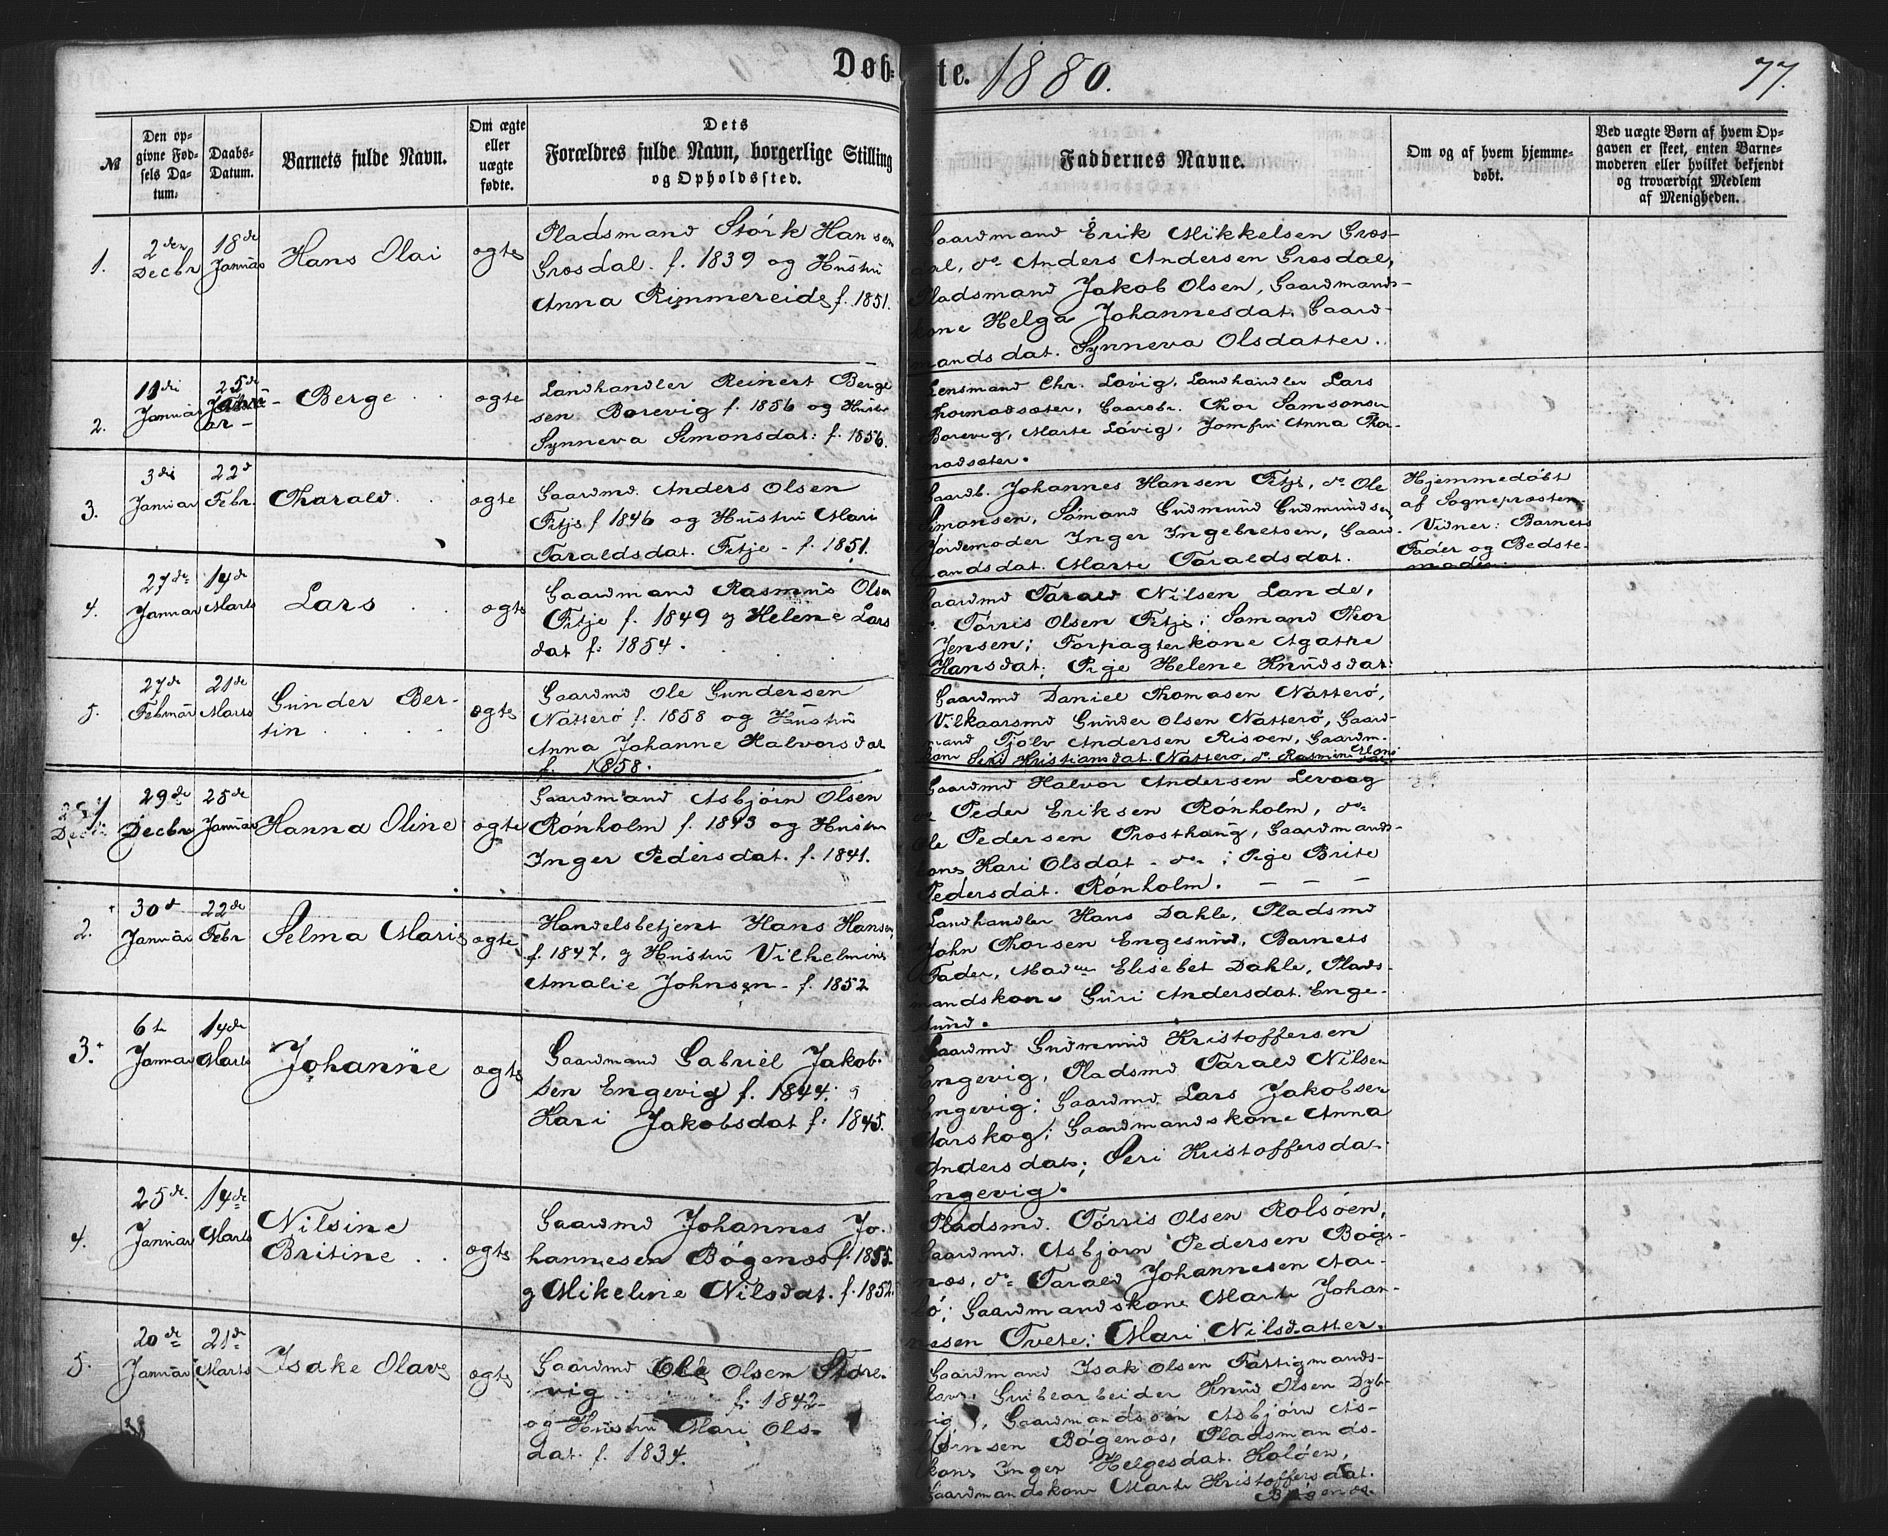 Døbte. 1880. 77.
№
Den opgivne Fødsels Datum.
Daabs-Datum.
Barnets fulde Navn.
Om ægte eller uægte fødte.
Dets Forældres fulde Navn, borgerlige Stilling og Opholdssted.
Faddernes Navne.
Om og af hvem hjemmedøbt.
Ved uægte Børn af hvem Opgaven er skeet, enten Barnemoderen eller hvilket bekjendt og troværdigt Medlem af Menigheden.
1.
2den Decbr
18de Januar
Hans Olai
ægte
Pladsmand Størk Hansen
Græsdal. f. 1839 og Hustru
Anna Rimmereide f. 1851.
Gaardmand Erik Mikkelsen Græs-
dal, do Anders Andersen Græsdal,
Pladsmand Jakob Olsen, Gaardmands-
kone Helga Johannesdat. Gaard-
mandsdat. Synneva Olsdatter.
2.
11de Januar
25de
Berge
ægte
Landhandler Reinert Berge
sen Borevig f. 1856 og Hustr
Synneva Simonsdat: f. 1856.
Lensmand Chr. Løvig, Landhandler Lars
Thormadsæter, Gaardbr. Thor Samsonsen
Borevig, Marte Løvig, Jomfru Anna Thor-
madsæter.
3.
3die Januar
22d Febr.
Tharald
ægte
Gaardmd. Anders Olsen
Fitje f 1846 og Hustru Mari
Taraldsdat. Fitje - f. 1851.
Gaardb. Johannes Hansen Fitje, do Ole
Simonsen, Sømand Gudmund Gudmundsen
Jordemoder Inger Ingebretsen, Gaard-
mandsdat. Marte Taraldsdat.
Hjemmedøbt
af Sognepræsten.
Vidner: Barnets
Fader og Bedste-
moder.
4.
27de Januar
14de Marts
Lars
ægte
Gaardmand Rasmus Olsen
Fitje f. 1849 og Helene Lars
dat f. 1854.
Gaardmd Tarald Nilsen Lande,
do Tørris Olsen Fitje; Sømand Thor
Jensen; Forpagterkone Agathe
Hansdat; Pige Helene Knudsdat:
5.
27de Februar
21de Marts
Gunder Ber-
tin
ægte
Gaardmd Ole Gundersen
Natterø f. 1858 og Hustru
Anna Johanne Halvorsdat
f. 1858.
Gaardmd Daniel Thomasen Natterø,
Vilkaarsmd Gunder Olsen Natterø, Gaard-
mand Tjolv Andersen Risøen, Gaardm-
kone Siri Kristiansdat. Natterø, do
Decbr
29de Decbr
25de Januar
Hanna Oline
ægte
Gaardmand Asbjørn Olsen
Rønholm f. 1843 og Hustru
Inger Pedersdat. f. 1841.
Gaardmd Halvor Andersen Levaag
do Peder Eriksen Rønholm, do
Ole Pedersen Prosthaug, Gaardmands-
kone Kari Olsdat - do - ; Pige Brite
Pedersdat. Rønholm.
2.
30d Januar
22de Febr
Selma Marie
ægte
Handelsbetjent Hans Hansen
f. 1847, og Hustru Vilhelmine
Amalie Johnsen - f. 1852
Landhandler Hans Dahle, Pladsmd
John Thorsen Engesund, Barnets
Fader, Madme Elisebet Dahle, Plads-
mandskone Guri Andersdat. Enge-
sund.
3.
6te Januar
14de Marts
Johanne
ægte
Gaardmand Gabriel Jakob-
sen Engevig f. 1844. og
Kari Jakobsdat f. 1845.
Gaardmd Gudmund Kristoffersen
Engevig, Pladsmd Tarald Nilsen
Engevig; Gaardmd Lars Jakobsen
Aarskog; Gaardmandskone Anna
Andersdat; Seri Kristoffersdat
Engevig.
4.
25de Januar
14de Marts
Nilsine
Britine
ægte
Gaardmd Johannes Jo-
hannesen Bøgenæs f. 1855.
og Mikeline Nilsdat. f. 1852.
Pladsmd. Tørris Olsen Rolsøen,
Gaardmd. Asbjørn Pedersen Bøge-
næs, do Tarald Johannesen
Gaardmandskone Marte Johan-
nesen Tvete; Mari Nilsdatter.
5.
20de Januar
21de Marts
Isake Olave
ægte
Gaardmd Ole Olsen Store-
vig f. 1842
og Hustru Mari Ols-
dat. f. 1834.
Gaardmand Isak Olsen Fattigmands-
Grubearbeider Knud Olsen Dyb-
vig, Gaardmandssøn Asbjørn As-
bjørnsen Bøgenæs, Pladsmands-
kone Inger Helgesdat. Koløen,
Gaardmandskone Marte Kristoffersdat.
Bøgenæs.